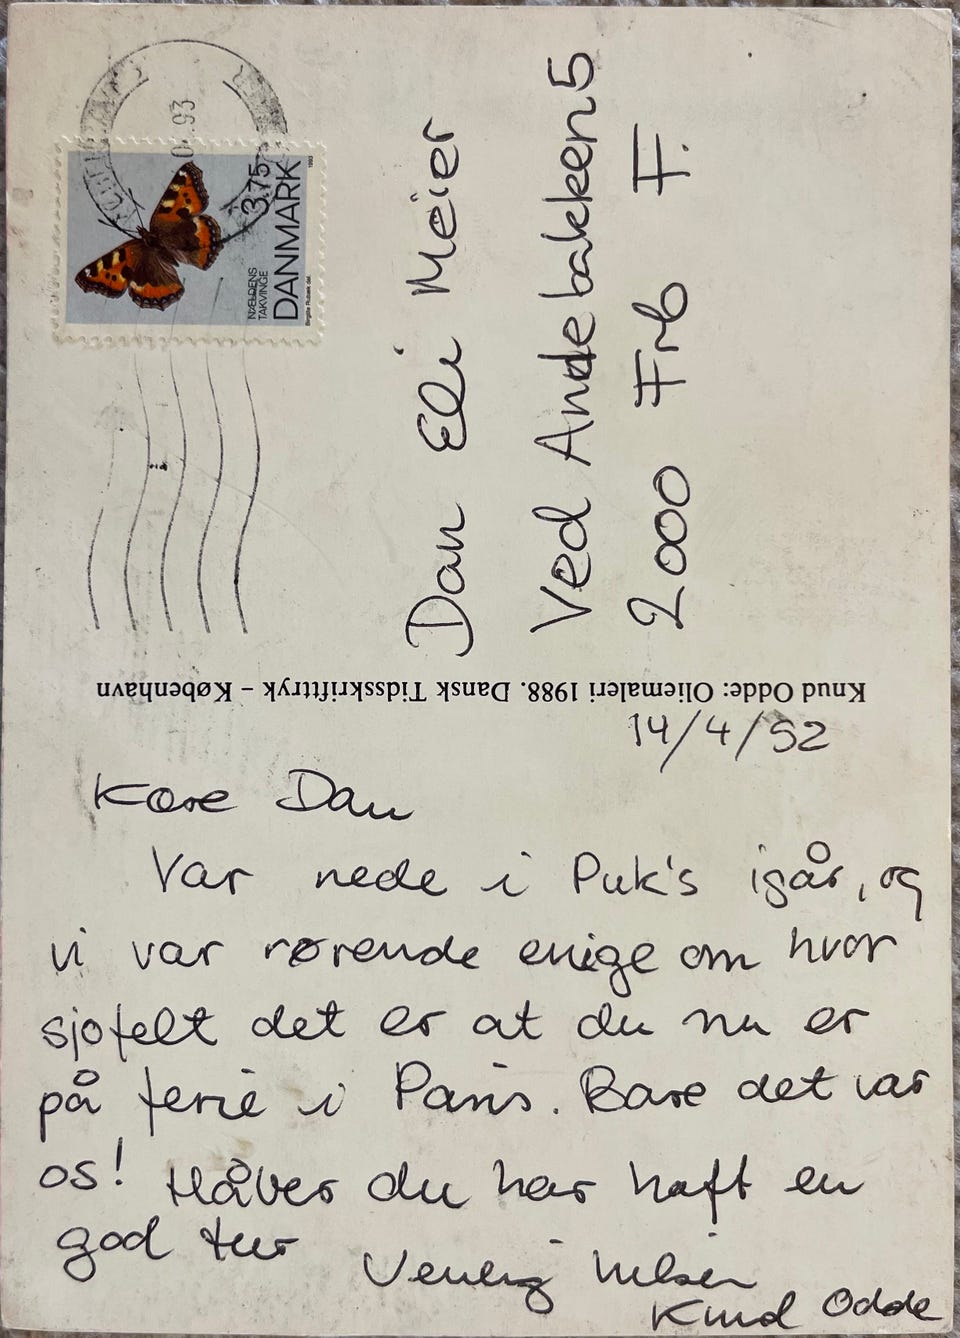 93
3.75
DANMARK
NÆLDENS
TAKVINGE
1993
Dan Eli Meier
Ved Andebakken 5
2000 Frb F.
Knud Odde: Oliemaleri 1988. Dansk Tidsskrifttryk – København
14/4/52
Kære Dan
Var nede i Puk's igår, og
vi var rørende enige om hvor
sjofelt det er at du nu er
på ferie i Paris. Bare det var
os! Håber du har haft en
god tur
Venlig hilsen
Knud Odde